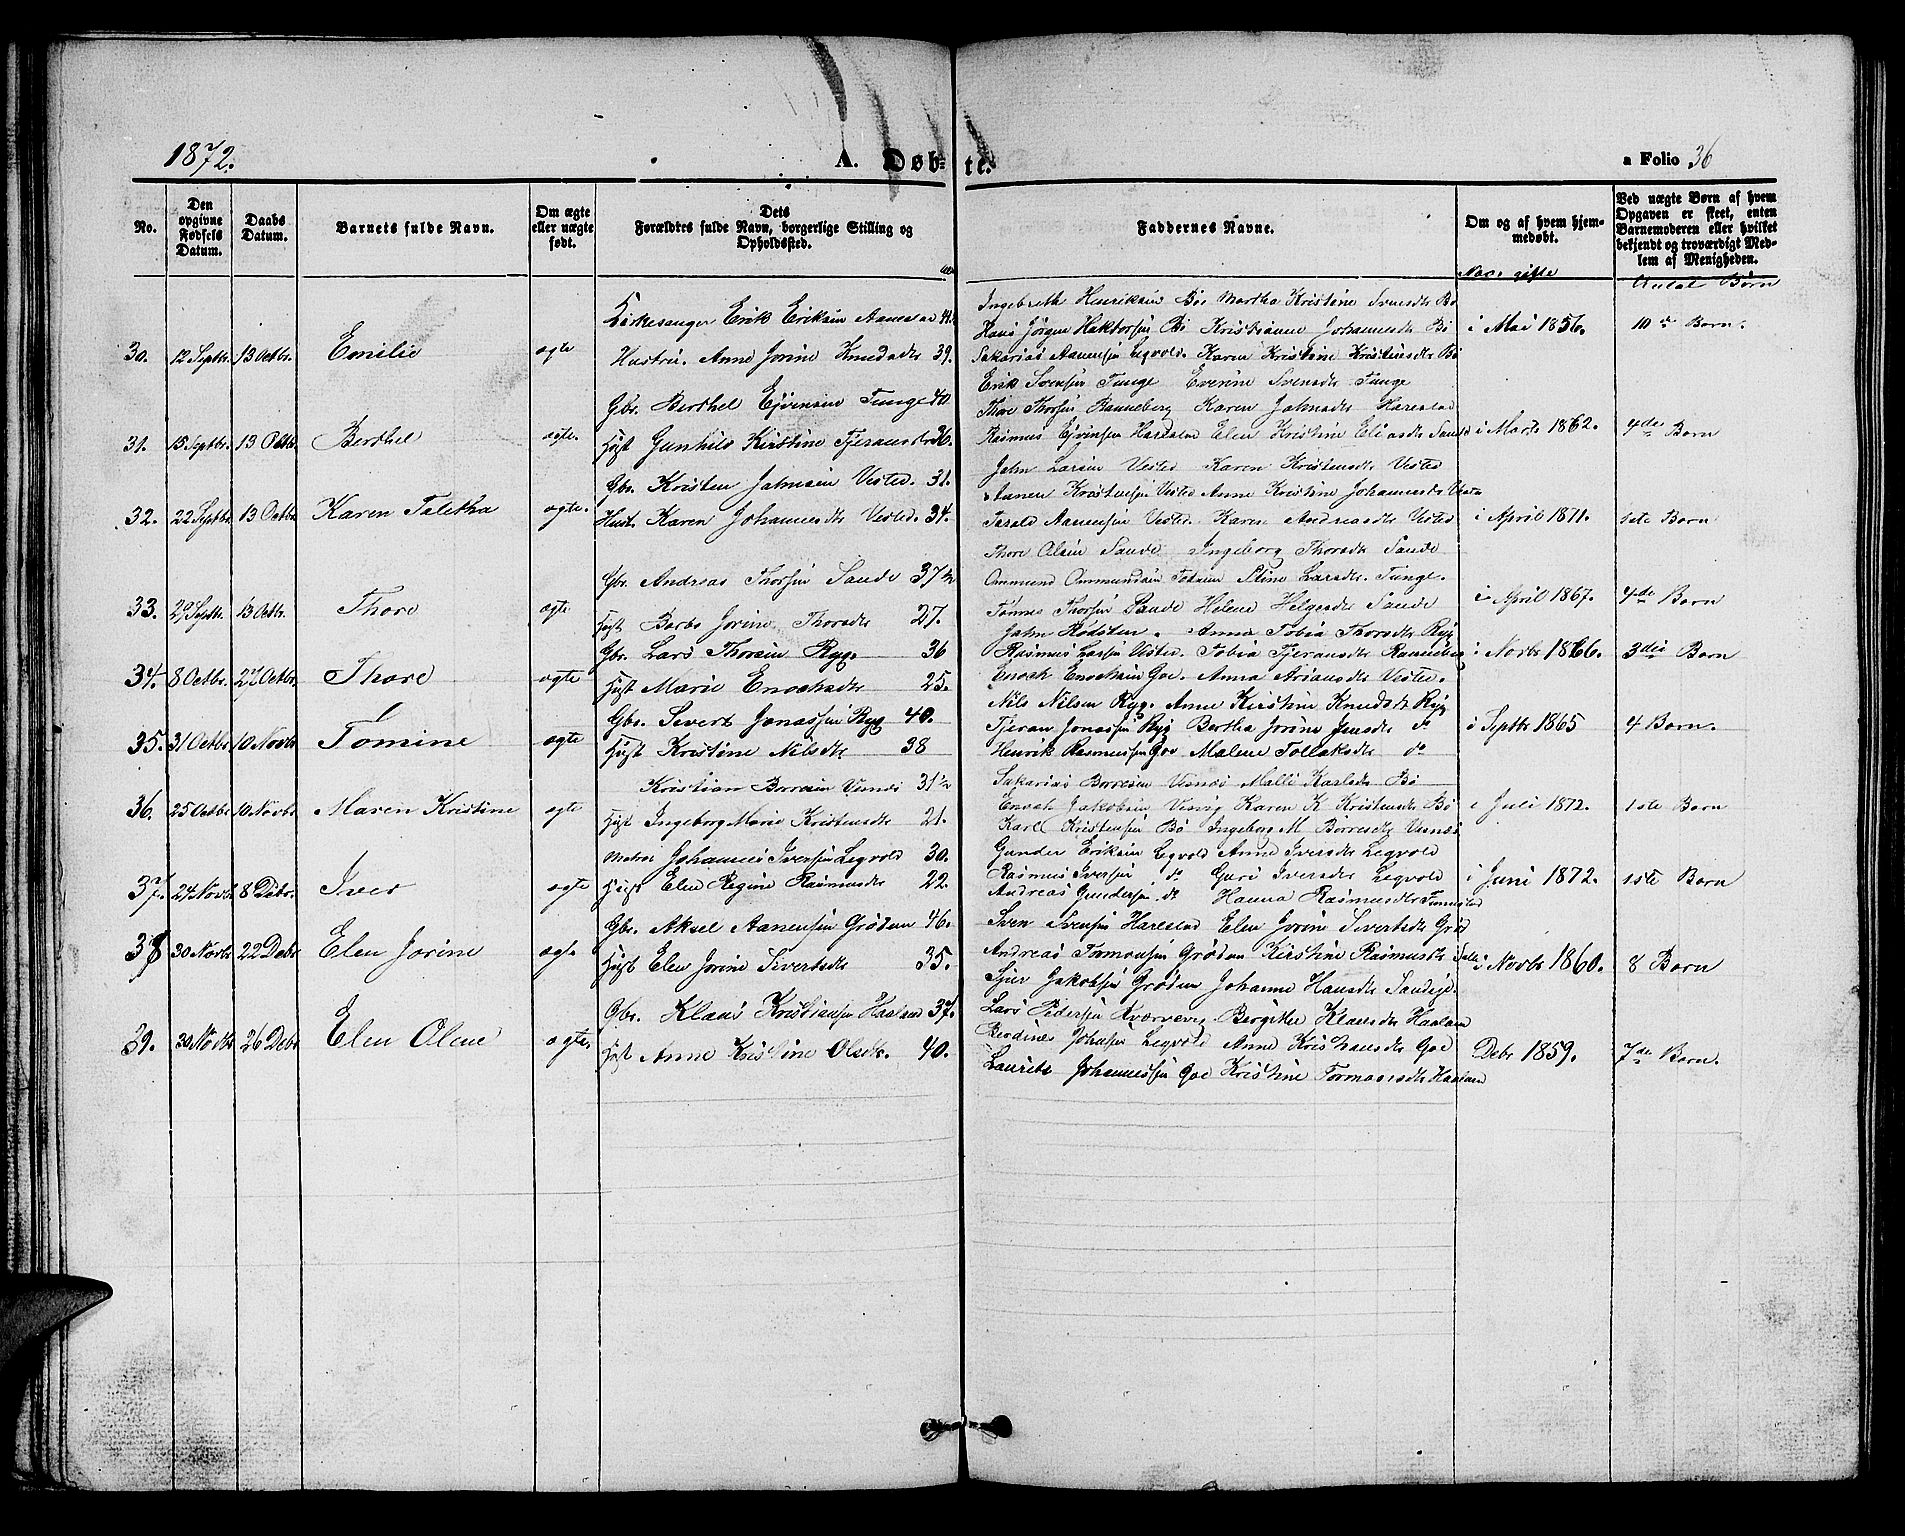 1872.
A. Døb-
te.
a Folio 36
No.
Den opgivne Fødsels Datum.
Daabs Datum.
Barnets fulde Navn.
Om ægte eller uægte født.
Dets Forældres fulde Navn, borgerlige Stilling og Opholdssted.
Faddernes Navne.
Om og af hvem hjem-
medøbt.
Ved uægte Børn af hvem
Opgaven er skeet, enten
Barnemoderen eller hvilket
bekjendt og troværdigt Med-
lem af Menigheden.
Naar gifte
Antal Børn
30. 12 Septbr. 13 Octbr. Emilie ægte
Kirkesanger Erik Eriksen
Hustru. Anne Jorine 39.
Ingebreth Henriksen Bø Martha Kristine Svensdtr Bø
Hans Jörgen Haktorsen Bö Kristianne Johannesdtr Bö
Sakarias Aanensen Legvold. Karen Kristine Kristensdtr Bö
i Mai 1856.
10de Barn.
31. 15 Septbr. 13 Octbr Berthel ægte.
Gbr. Berthel Ejvensen Tunge 40
Hust Gunhild Kirstine 36.
Erik Svensen Tunge Everine Svensdtr Tunge
Thore Thorsen Ranneberg Karen Johnsdtr Harestad
Rasmus Ejvensen Harestad Elen Kristine Eliasdtr Sande
i Marts 1862.
4de Barn
32. 22 Septbr 13 Octbr Karen Taletha ægte.
Gbr. Kristen Johnsen Vested. 31.
Hust. Karen Johannesdtr Vested. 34.
John Larsen Vested Karen Kristensdtr Vested
Aanen Kristensen Vested Anne Kristine Johannesdtr
Aanensen Vested. Karen Andreasdtr Vested
i April 1871.
1ste Barn
33. 29 Septbr. 13 Octbr. Thore ægte
Gbr. Andreas Thorsen Sande 37½
Hust Berthe Jorine Thorsdtr 27.
Thore Olsen Sande Ingeborg Thorsdtr Sande
Ommund Ommundsen Stine Larsdtr. Tunge.
Tönnes Thorsen Sande Helene Helgesdtr Sande
John Rödsten. Anna Tobia Thorsdtr Ryg
i April 1867.
4de Barn
34. 8 Octbr. 27 Octbr. Thore ægte
Gbr. Lars Thorsen Ryg. 36
Hust Marie Enochsdtr 25.
Rasmus Larsen Vested. Tobia Tjeransdtr Ranneberg
Enoch Enochsen Goe. Anna Ariansdtr Vested.
i Novbr 1866.
3die Barn
35. 31 Octbr 10 Novbr Tomine ægte
Gbr. Sivert Jonassen Ryg 40.
Hust Kristine Nilsdtr 38
Nils Nilsen Ryg. Anne Kirstine Knudsdtr Ryg
Tjeran Jonassen Ryg Bertha Jorine Jensdtr do
Henrik Rasmussen Goe Malene Tollaksdtr do
i Septbr 1865
4 Barn.
36. 25 Octbr 10 Novbr Maren Kristine ægte
Kristian Börresen Visnæs 31½
Hust Ingeborg Marie Kristensdtr 21.
Sakarias Börresen Visnæs Malli Karlsdtr Bö
Enoch Jakobsen Visvig Karen K Kristensdtr Bö
Karl Kristensen Bö Ingeborg M Börresdtr Visnæs
i Juli 1872.
1ste Barn
37. 24 Novbr 8 Debr. Iver ægte
Matros Johannes Iversen Legvold 30.
Hust Elen Regine Rasmusdtr 22.
Gunder Eriksen Legvold Anne Iversdtr Legvold
Rasmus Iversen do Guri Iversdtr Legvold
Andreas Gundersen do Hanna Rasmusdtr
i Juni 1872.
1ste Barn
38 30 Novbr 22 Debr Elen Jorine ægte
Gbr. Aksel Aanensen Grødem 46.
Hust Elen Jorine Sivertsdtr 35.
Sven Svensen Harestad Elen Jorine Sivertsdtr Grød
Andreas Tormodsen Grødem Kirstine Rasmusdtr
Sjur Jakobsen Grødem Johanne Hansdtr
i Novbr 1860.
8 Barn
39. 30 Novbr 26 Debr Elen Olene ægte.
Gbr. Klaus Kristiansen Haaland 37.
Hust Anne Kristine Olsdtr. 40.
Lars Pedersen Kvernevig Bergitte Klausdtr Haaland
Johnsen Legvold Anne Kristiansdtr Goe
Laurits Johannessen Goe Kristine Tormodsdtr Haaland
Debr 1859.
7de Barn.